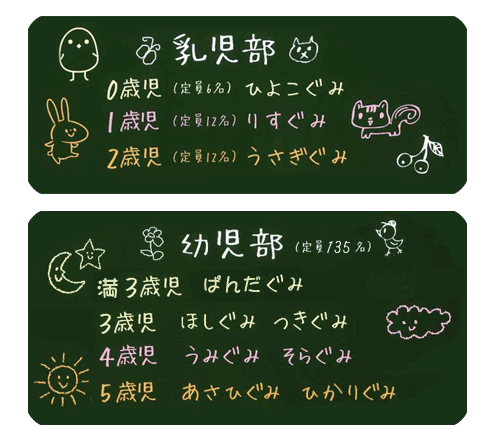 乳児部
0歳児 (定員6名) ひよこぐみ
1歳児 (定員12名) りすぐみ
2歳児 (定員12名) うさぎぐみ
幼児部 (定員135名)
満3歳児 ぱんだぐみ
3歳児 ほしぐみ つきぐみ
4歳児 うみぐみ そらぐみ
5歳児 あさひぐみ ひかりぐみ